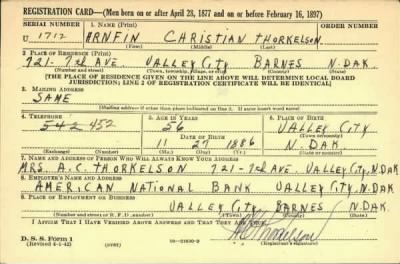 REGISTRATION CARD—(Men born on or after April 28, 1877 and on or before February 16, 1897)
SERIAL NUMBER 1. NAME (Print) ORDER NUMBER
U 1712 ARNFIN CHRISTIAN THORKELSON
(First) (Middle) (Last)
2. PLACE OF RESIDENCE (Print)
721-7th AVE VALLEY CITY BARNES N.DAK.
(Number and street) (Town, township, village, or city) (County) (State)
[THE PLACE OF RESIDENCE GIVEN ON THE LINE ABOVE WILL DETERMINE LOCAL BOARD
JURISDICTION; LINE 2 OF REGISTRATION CERTIFICATE WILL BE IDENTICAL]
3. MAILING ADDRESS
SAME
[Mailing address if other than place indicated on line 2. If same insert word same]
4. TELEPHONE 5. AGE IN YEARS 6. PLACE OF BIRTH
56 VALLEY CITY
(Town or county)
DATE OF BIRTH
11 27 1886 N.DAK.
(Exchange) (Number) (Mo.) (Day) (Yr.) (State or country)
7. NAME AND ADDRESS OF PERSON WHO WILL ALWAYS KNOW YOUR ADDRESS
MRS. A.C. THORKELSON 721-7th AVE. VALLEY CITY, N.DAK
8. EMPLOYER'S NAME AND ADDRESS
AMERICAN NATIONAL BANK VALLEY CITY, N.DAK
9. PLACE OF EMPLOYMENT OR BUSINESS
VALLEY CITY BARNES N.DAK.
(Number and street or R. F. D. number) (Town) (County) (State)
I AFFIRM THAT I HAVE VERIFIED ABOVE ANSWERS AND THAT THEY ARE TRUE.
D. S. S. Form 1
(Revised 4-1-42) (over) 16—21630-2 (Registrant's signature)